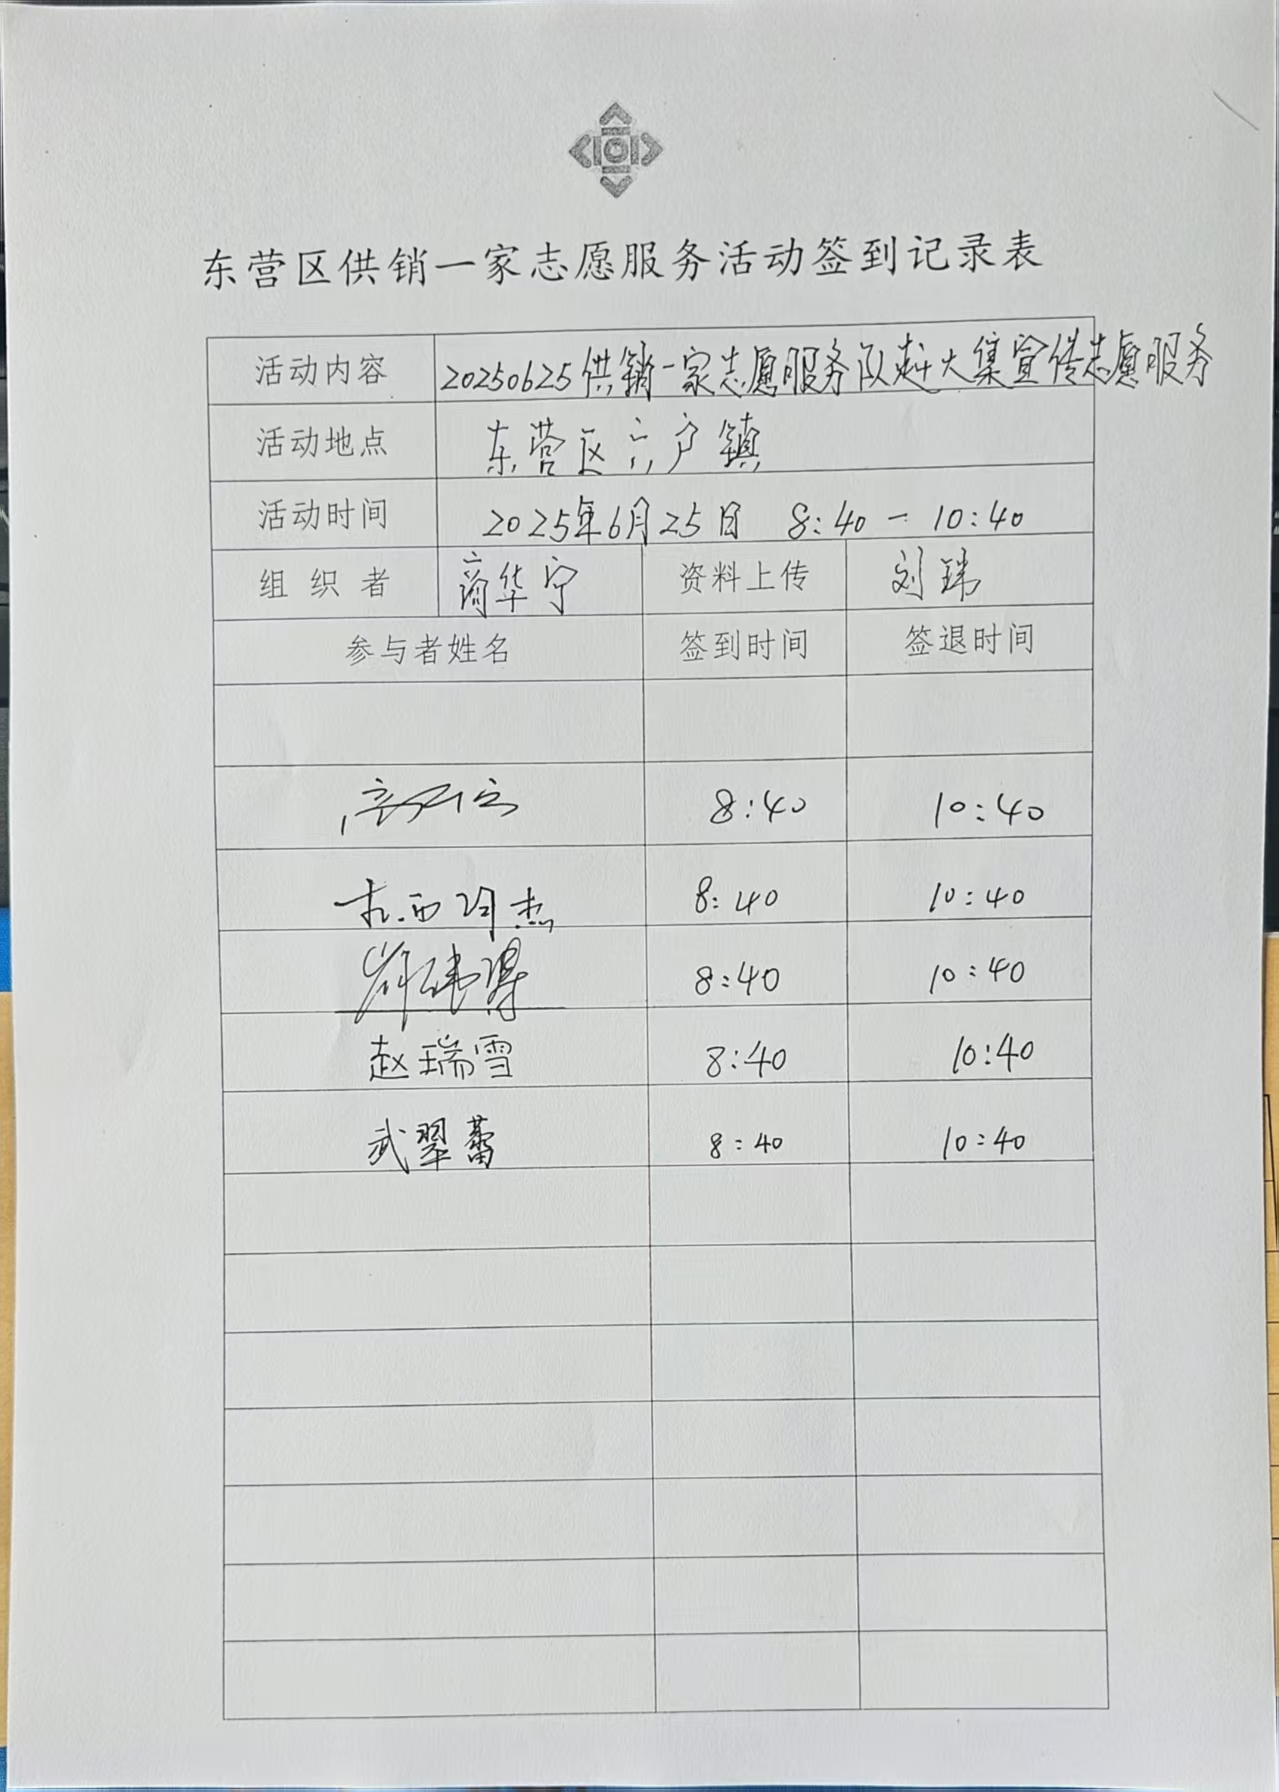 东营区供销一家志愿服务活动签到记录表
活动内容 20250625供销一家志愿服务队赶大集宣传志愿服务
活动地点 东营区六户镇
活动时间 2025年6月25日 8:40-10:40
组织者 商华宁 资料上传 刘玮
参与者姓名 签到时间 签退时间
8:40 10:40
8:40 10:40
8:40 10:40
赵瑞雪 8:40 10:40
武翠蕾 8:40 10:40